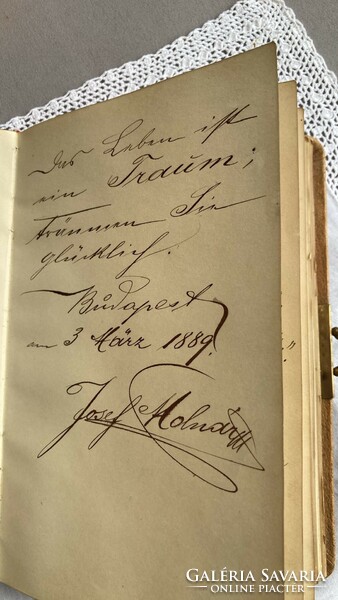 Das Leben ist
ein Traum;
träumen Sie
glücklich.
Budapest
am 3 März 1889.
Josef Molnár
GALÉRIA SAVARIA
ONLINE PIACTÉR